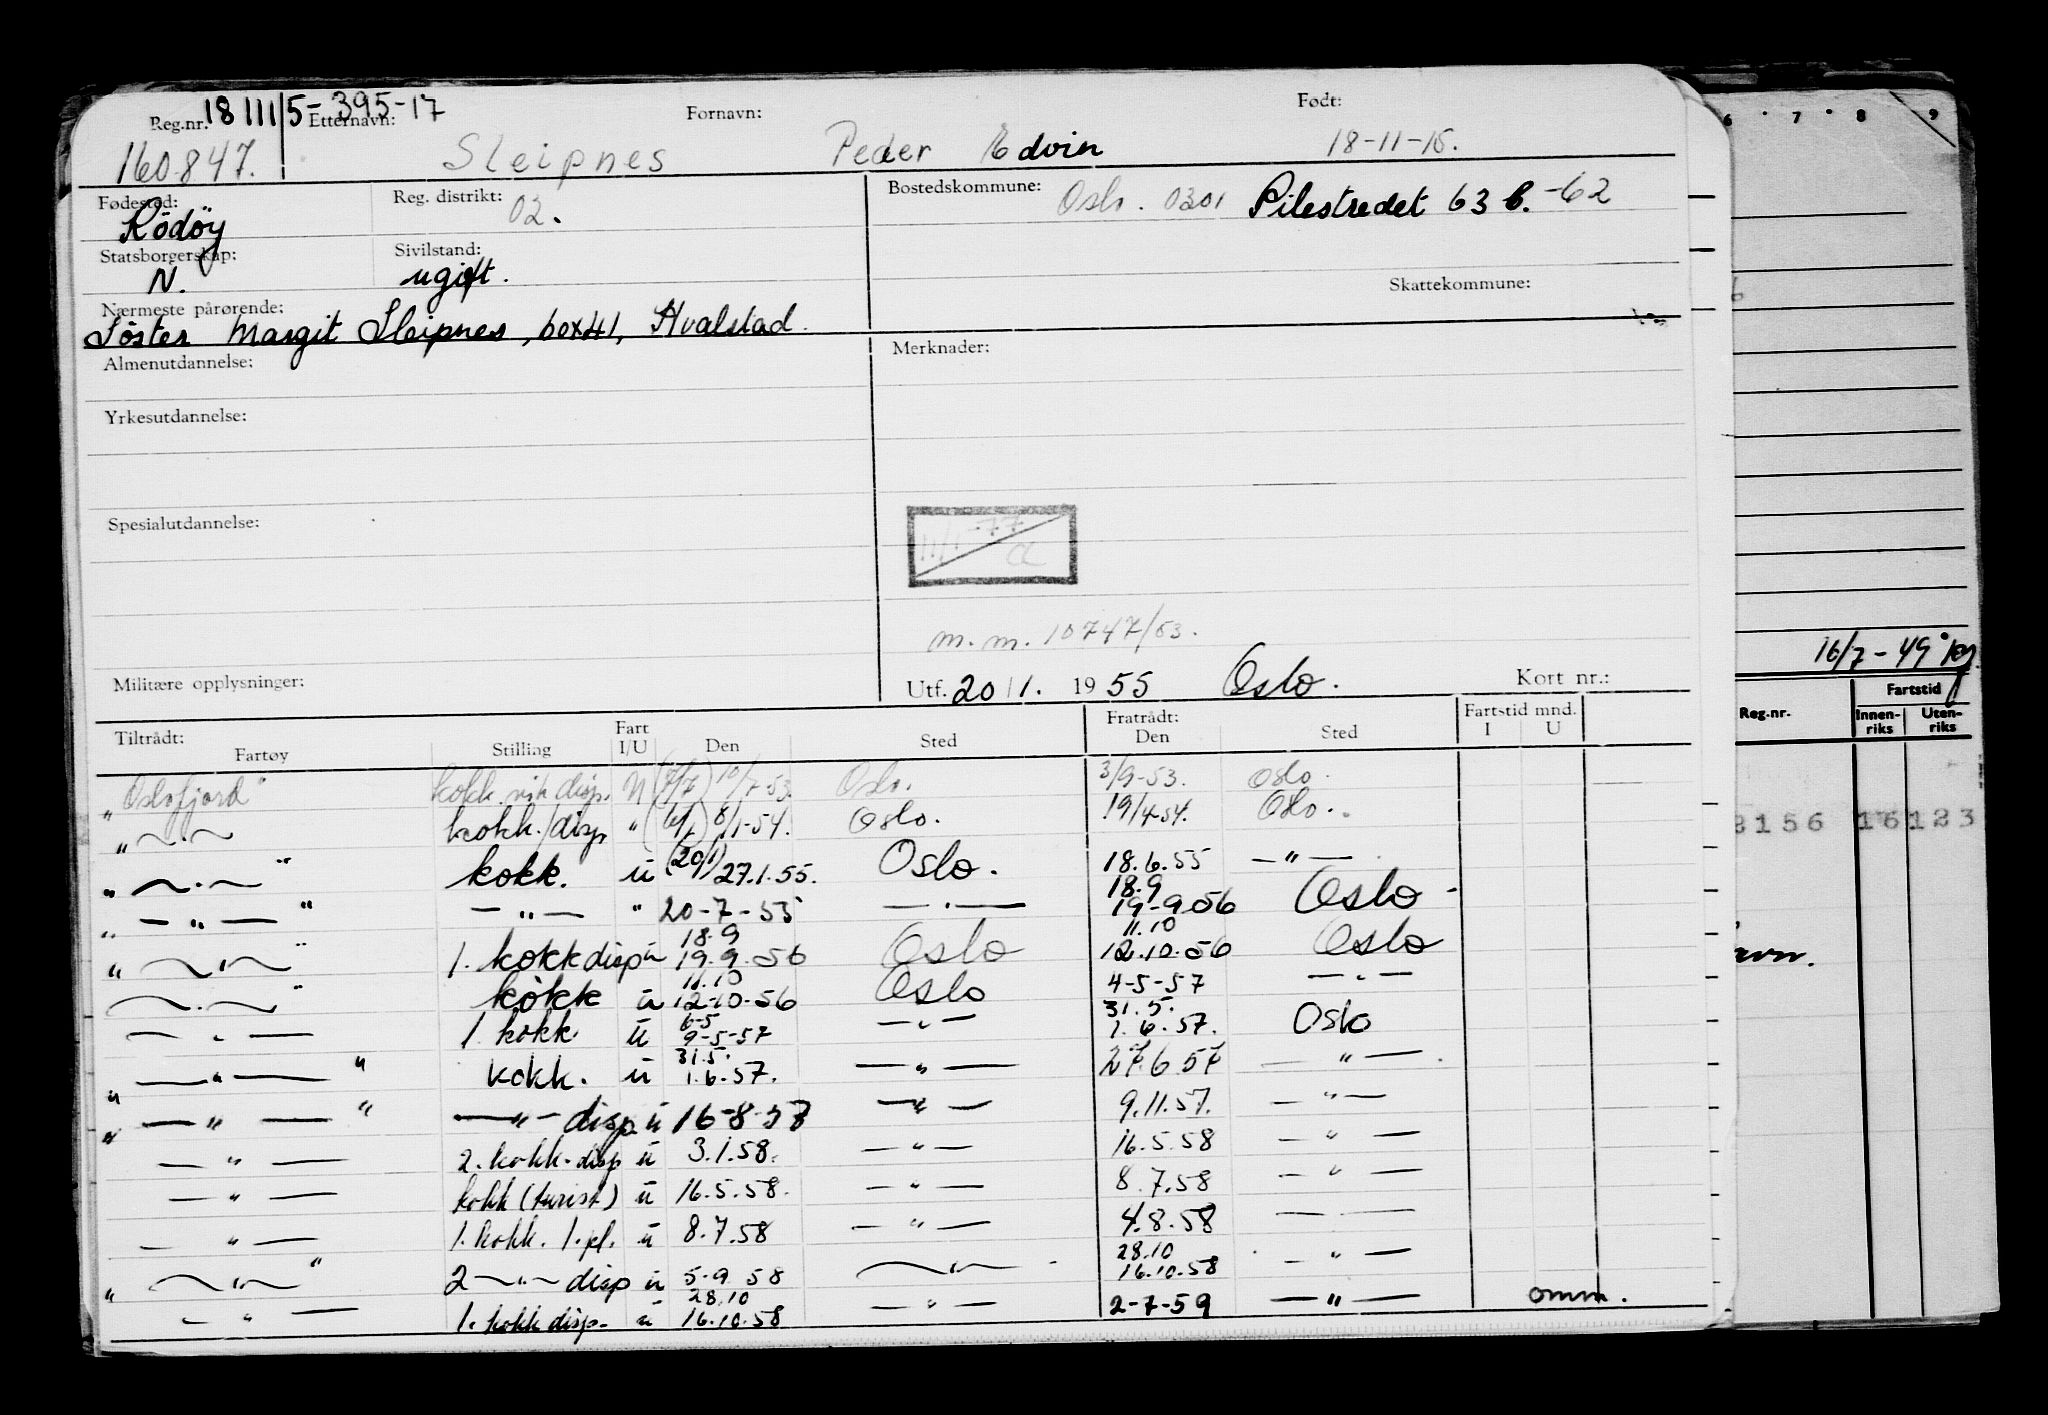 Reg.nr. 18 111 5-395-17 Etternavn: Fornavn: Født:
160847. Sleipnes Peder Edvin 18-11-15.
Fødested: Reg. distrikt: 02. Bostedskommune: Oslo. 0301 Pilestredet 63 b. -62
Rödöy
Statsborgerskap: Sivilstand:
N. ugift. Skattekommune:
Nærmeste pårørende:
Söster Margit Sleipnes, box 41, Hvalstad.
Almenutdannelse: Merknader:
Yrkesutdannelse:
Spesialutdannelse:
11/1-77
m.m. 10747/53.
Militære opplysninger: Utf. 20/1. 1955 Oslo. Kort nr.:
Tiltrådt: Fart Fratrådt: Fartstid mnd.
Fartøy Stilling I/U Den Sted Den Sted I U
"Oslofjord" kokk disp. U (7/7) 10/7-53. Oslo. 3/9-53. Oslo.
" — . — kokk./disp " 8/1-54. Oslo. 19/4-54. Oslo.
" — . — " kokk. u (20/1) 27.1.55. Oslo. 18.6.55 — " —
" — " — " — " — " 20-7-55 — " — 18.9 19-9-56 Oslo
" — " — " 1. kokk disp u 18.9 19.9.56 Oslo 11.10 12.10.56 Oslo
— . — " kokk u 11.10 12-10-56 Oslo 4-5-57 — " —
— " — 1. kokk u 6-5 9-5-57 — " — 31.5. 1.6.57. Oslo
" — " — " kokk. u 31.5. 1.6.57. — " — 27.6.57 — " —
" — " — " — " — disp u 16-8-57 — " — 9.11.57. — " —
— " — 2. kokk. disp u 3.1.58. — " — 16.5.58 — " —
— " — kokk (turist) u 16.5.58. — " — 8.7.58 — " —
— " — 1. kokk. 1. pl. u 8.7.58 — " — 4.8.58 — —
" — " — " 2 — " — disp u 5-9 58 — " — 28.10 16.10.58 — " —
— " — 1. kokk disp. u 28.10 16.10.58 — " — 2-7-59 — " — omm.
6 7 8 9
16/7-49
Reg.nr. Fartstid
Innen-riks Uten-riks
2156 16 123